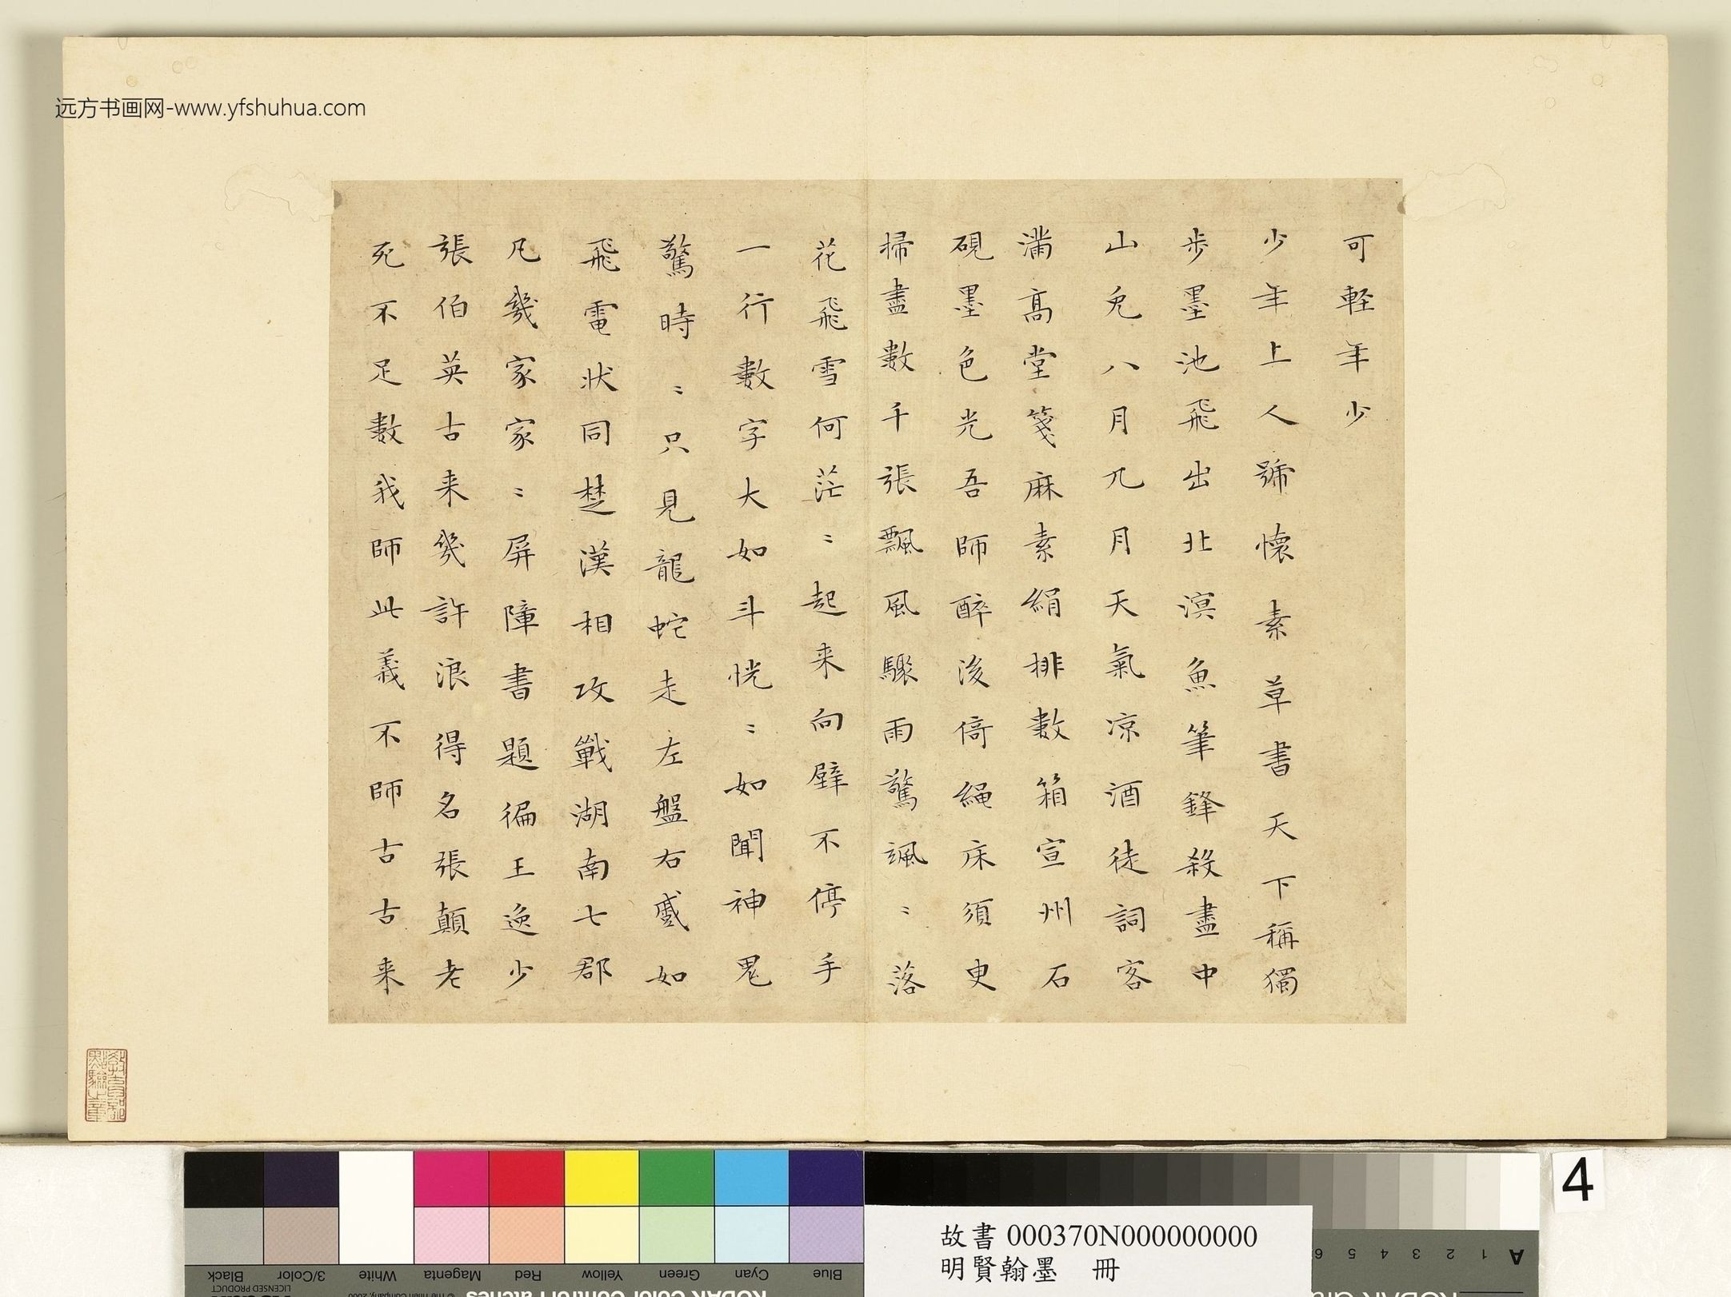 远方书画网-www.yfshuhua.com
可軽年少
少年上人號懷素草書天下稱獨
步墨池飛出北溟魚筆鋒殺盡中
山兔八月九月天氣凉酒徒詞客
滿高堂箋麻素絹排數箱宣州石
硯墨色光吾師醉後倚繩床須臾
掃盡數千張飄風驟雨驚颯〻落
花飛雪何茫〻起来向壁不停手
一行數字大如斗恍〻如聞神鬼
驚時〻只見龍蛇走左盤右蹙如
飛電状同楚漢相攻戰湖南七郡
凡幾家家〻屏障書題徧王逸少
張伯英古来幾許浪得名張顛老
死不足數我師此義不師古古来
4
故書 000370N000000000
明賢翰墨 冊
Black
3/Color
White
Magenta
Red
Yellow
Green
Cyan
Blue
KODAK Color Control Patches
LICENSED PRODUCT
A 1 2 3 4 5 6